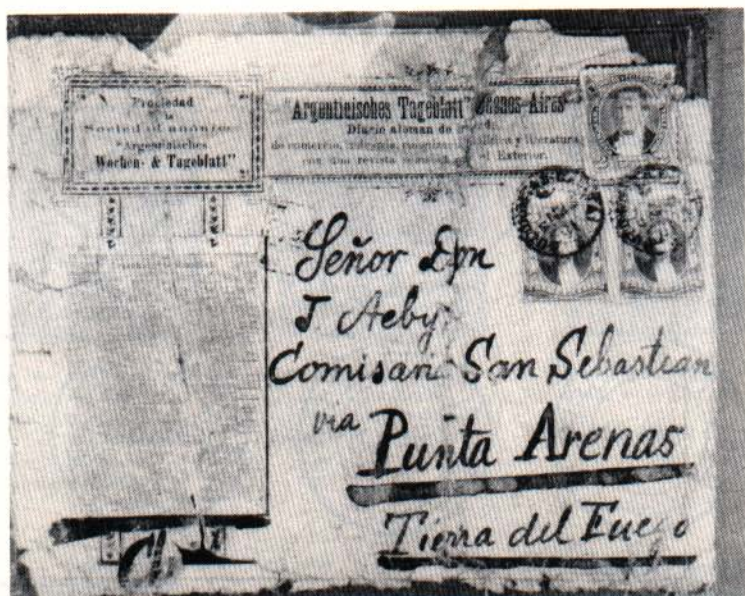 Propiedad
de la
Sociedad anónima
"Argentinisches
Wochen- & Tageblatt"
"Argentinisches Tageblatt" Buenos-Aires
Diario aleman de
de comercio, y literatura,
con una revista el Exterior.
Señor Don
J Aeby
Comisario San Sebastian
via
Punta Arenas
Tierra del Fuego